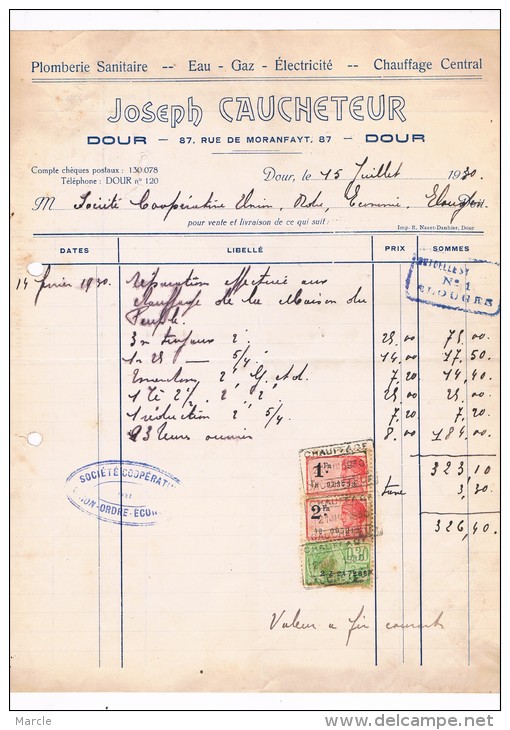 Plomberie Sanitaire -- Eau - Gaz - Électricité -- Chauffage Central
Joseph CAUCHETEUR
DOUR — 87, RUE DE MORANFAYT, 87 — DOUR
Compte chèques postaux : 130.078
Téléphone : DOUR n° 120
Dour, le 15 Juillet 1930.
M Société Coopérative Union, Ordre, Economie, Elouges
pour vente et livraison de ce qui suit:
Imp. R. Nauet-Danhier, Dour
DATES LIBELLÉ PRIX SOMMES
N° 1
ELOUGES
14 février 1930. Réparation effectuée aux
chauffage de la Maison du
Peuple.
3 m tuyaux 2" 25.00 75.00
1.25 — 5/4 14.00 17.50
2" G. 7.20 14.40
1 Té 2" 2" 2" 25.00 25.00
1 réduction 2" 5/4 7.20 7.20
23 heures ouvrier 8.00 184.00
323,10
taxe 3,30
326,40.
SOCIÉTÉ COOPÉRATI
UNION-ORDRE-ECON
CHAUFFAGE
1 Fr
CHAUFFAGE
2 Fr
CHAUFFAGE
0,30
Valeur à fin courant
Marcle
www.delcampe.net